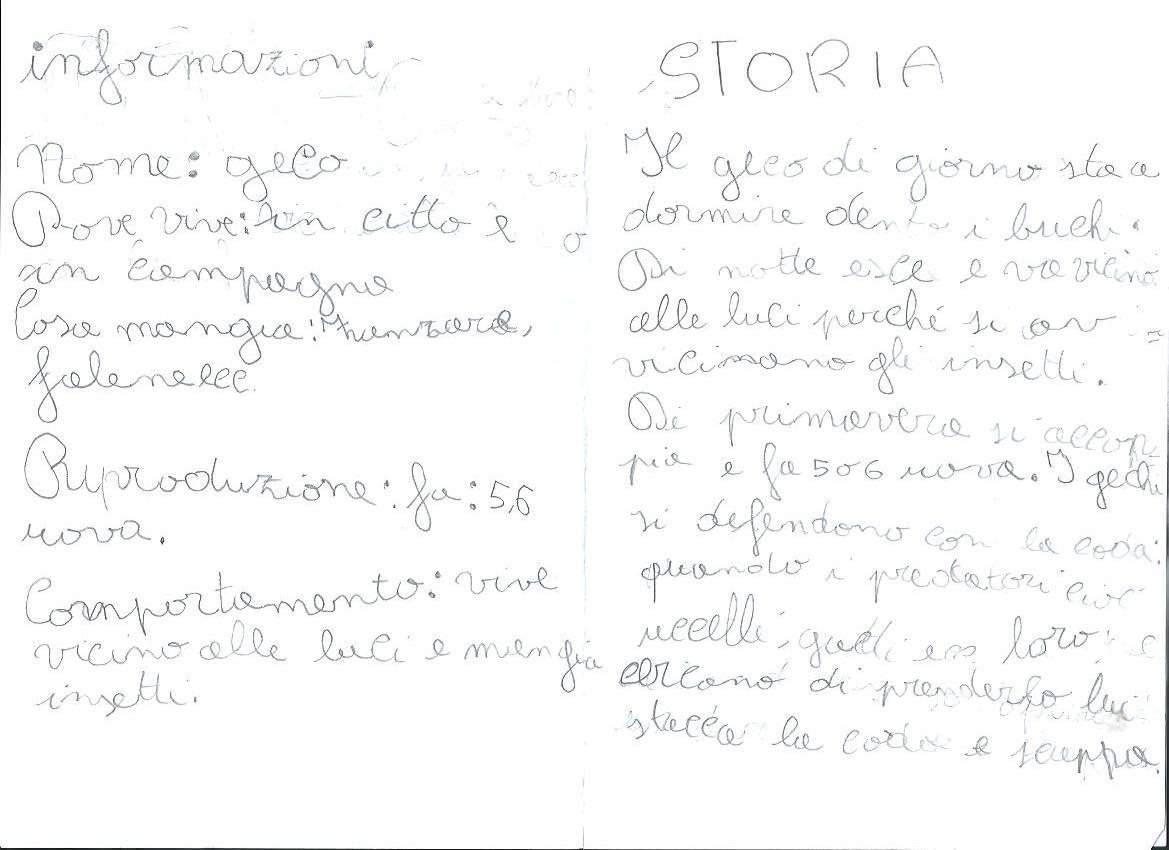 informazioni
Nome: geco
Dove vive: in citto e
in campagna
Cosa mangia: zanzare,
falene ecc.
Riproduzione: fa: 5,6
uova.
Comportamento: vive
vicino alle luci e mangia
insetti.
STORIA
Il geco di giorno sta a
dormire dento i buchi.
Di notte esce e va vicino
alle luci perché si av=
vicinano gli insetti.
Di primavera si accop
pia e fa 5 o 6 uova. I gechi
si defendono con la coda:
quando i predatori cioè
uccelli, gatti ecc loro
cercano di prenderlo lui
stacca la coda e scappa.